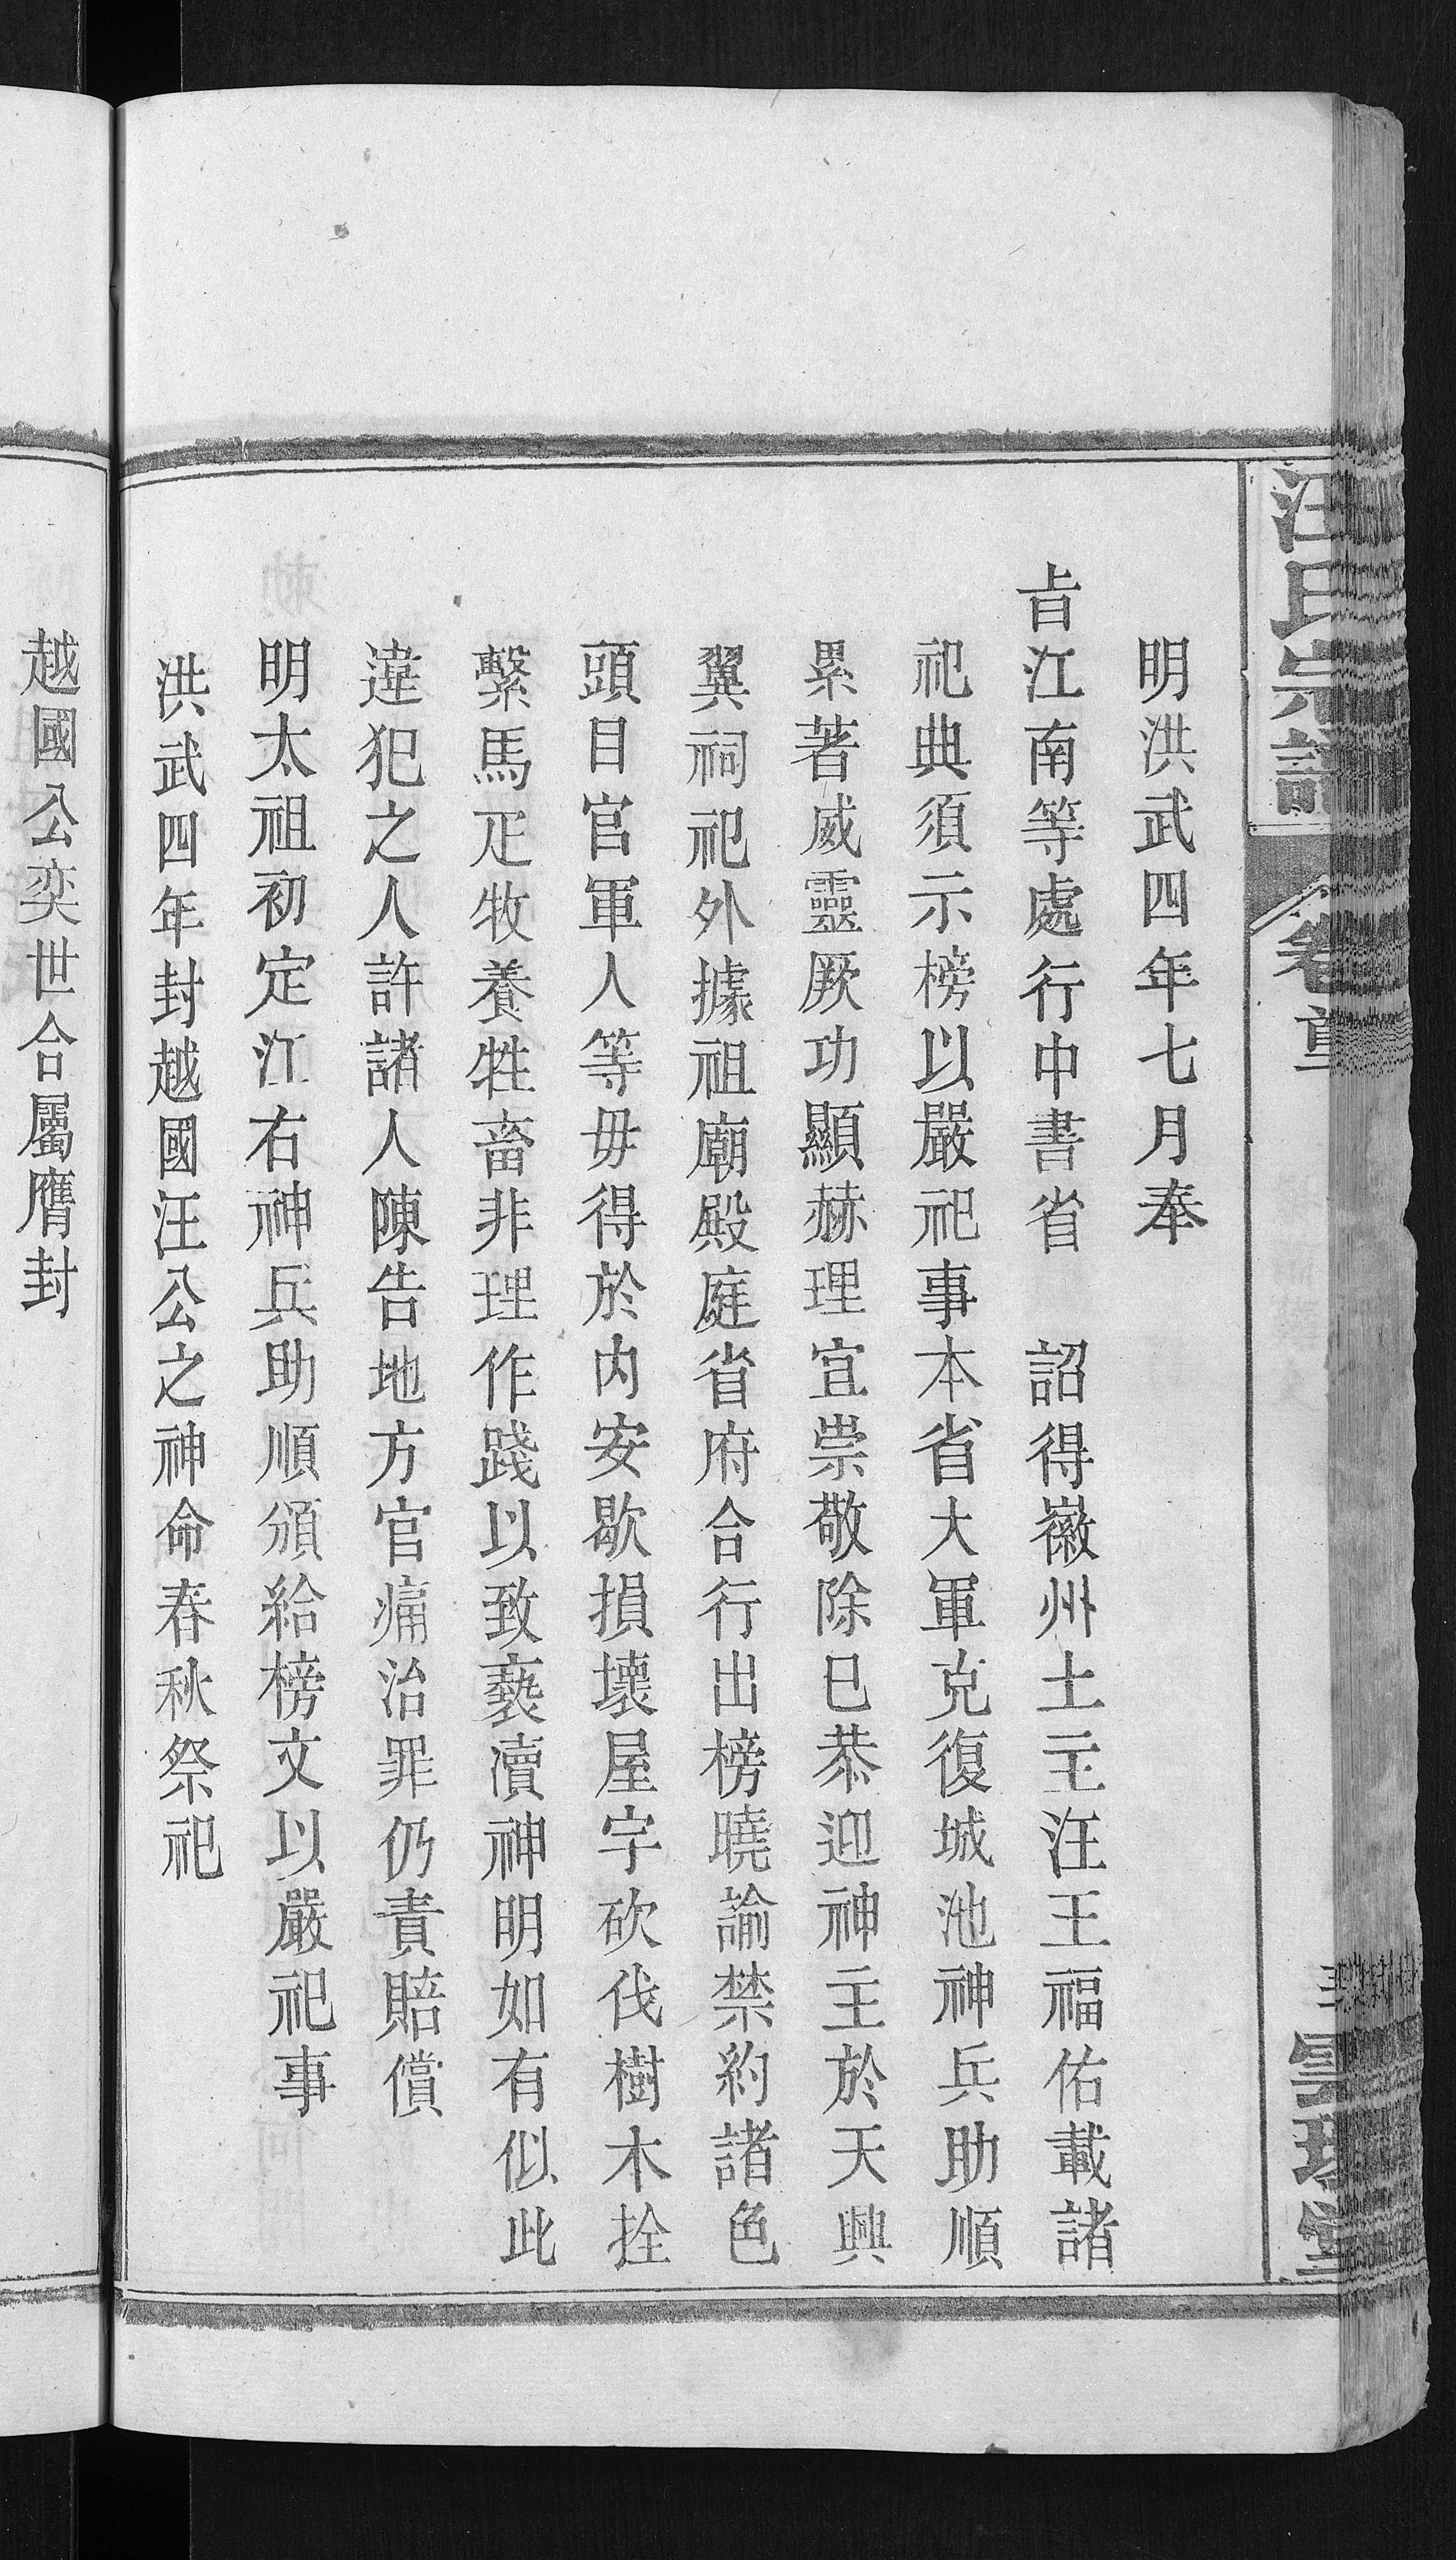 汪氏宗譜
卷
明洪武四年七月奉
旨江南等處行中書省　詔得徽州土主汪王福佑載諸
祀典須示榜以嚴祀事本省大軍克復城池神兵助順
累著威靈厥功顯赫理宜崇敬除巳恭迎神主於天興
翼祠祀外據祖廟殿庭省府合行出榜曉諭禁約諸色
頭目官軍人等毋得於内安歇損壞屋宇砍伐樹木拴
繫馬疋牧養牲畜非理作踐以致褻瀆神明如有似此
違犯之人許諸人陳告地方官痛治罪仍責賠償
明太祖初定江右神兵助順頒給榜文以嚴祀事
洪武四年封越國汪公之神命春秋祭祀
越國公奕世合屬膺封